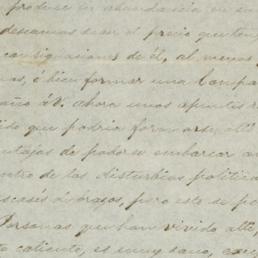 produce en abundancia en
deseamos saber el precio que ten
consignaciones de él, al menos
nas, ó bien formar una Compa
año á V. ahora unos apuntes
que podria formarse allí
ntajas de poderse embarcar
ntro de los disturbios politica
escasés de brazos, pero esto se p
Personas que han vivido allí,
caliente, es muy sano, exce